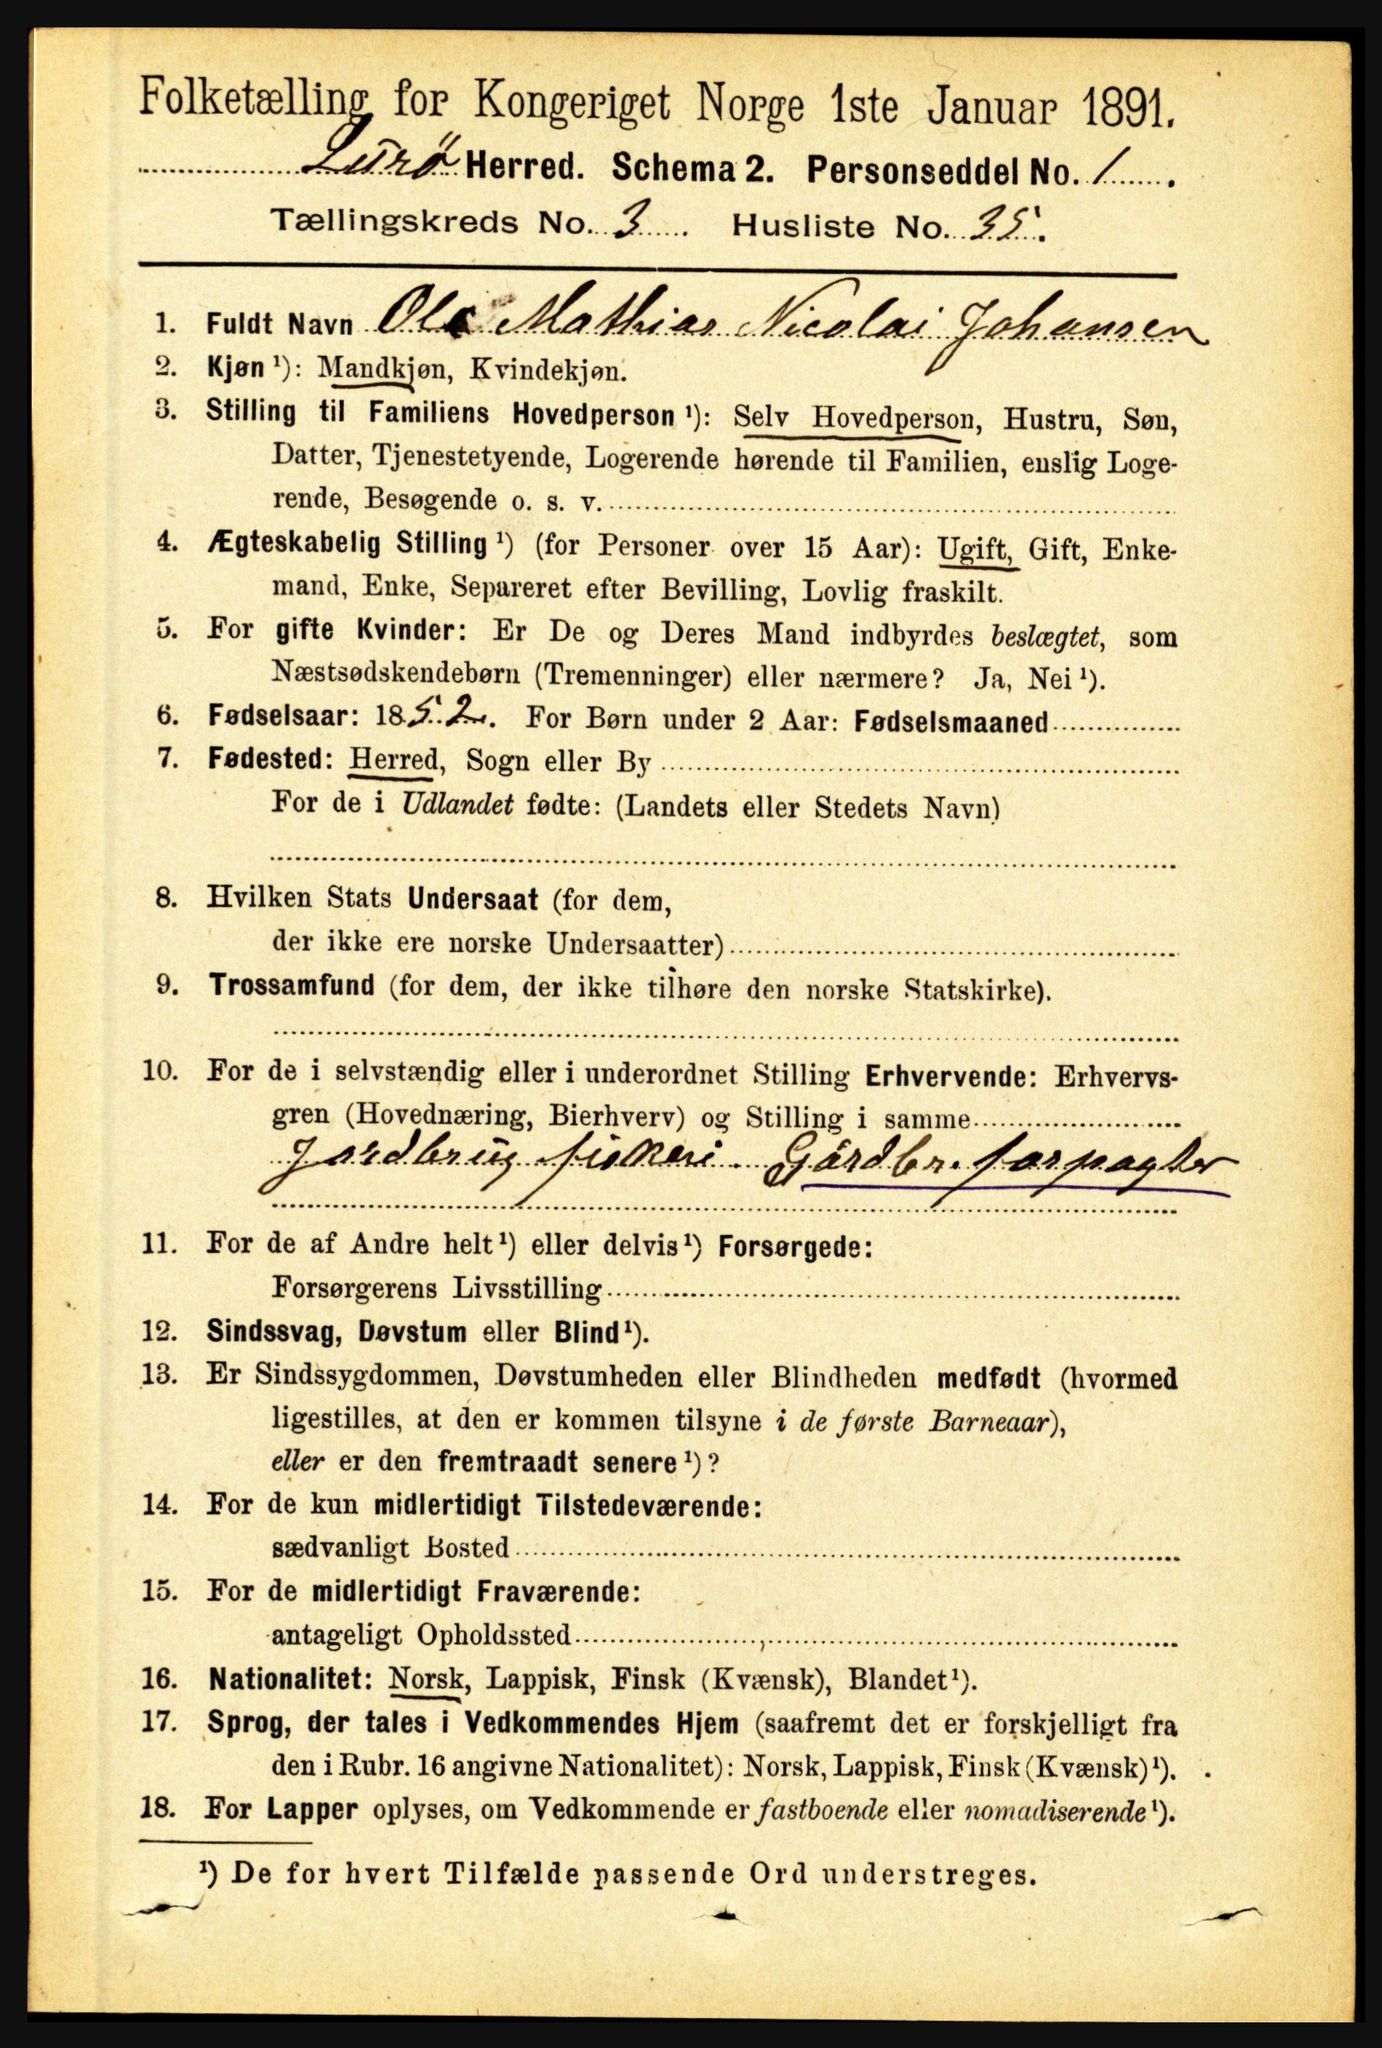 Folketælling for Kongeriget Norge 1ste Januar 1891.
Lurø Herred. Schema 2. Personseddel No. 1.
Tællingskreds No. 3. Husliste No. 35.
1. Fuldt Navn Ole Mathias Nicolai Johansen
2. Kjøn¹): Mandkjøn, Kvindekjøn.
3. Stilling til Familiens Hovedperson¹): Selv Hovedperson, Hustru, Søn,
Datter, Tjenestetyende, Logerende hørende til Familien, enslig Loge-
rende, Besøgende o. s. v.
4. Ægteskabelig Stilling¹) (for Personer over 15 Aar): Ugift, Gift, Enke-
mand, Enke, Separeret efter Bevilling, Lovlig fraskilt.
5. For gifte Kvinder: Er De og Deres Mand indbyrdes beslægtet, som
Næstsødskendebørn (Tremenninger) eller nærmere? Ja, Nei¹).
6. Fødselsaar: 1852. For Børn under 2 Aar: Fødselsmaaned
7. Fødested: Herred, Sogn eller By
For de i Udlandet fødte: (Landets eller Stedets Navn)
8. Hvilken Stats Undersaat (for dem,
der ikke ere norske Undersaatter)
9. Trossamfund (for dem, der ikke tilhøre den norske Statskirke).
10. For de i selvstændig eller i underordnet Stilling Erhvervende: Erhvervs-
gren (Hovednæring, Bierhverv) og Stilling i samme
Jordbrug fiskeri. Gårdbr. forpagter
11. For de af Andre helt¹) eller delvis¹) Forsørgede:
Forsørgerens Livsstilling
12. Sindssvag, Døvstum eller Blind¹).
13. Er Sindssygdommen, Døvstumheden eller Blindheden medfødt (hvormed
ligestilles, at den er kommen tilsyne i de første Barneaar),
eller er den fremtraadt senere¹)?
14. For de kun midlertidigt Tilstedeværende:
sædvanligt Bosted
15. For de midlertidigt Fraværende:
antageligt Opholdssted
16. Nationalitet: Norsk, Lappisk, Finsk (Kvænsk), Blandet¹).
17. Sprog, der tales i Vedkommendes Hjem (saafremt det er forskjelligt fra
den i Rubr. 16 angivne Nationalitet): Norsk, Lappisk, Finsk (Kvænsk)¹).
18. For Lapper oplyses, om Vedkommende er fastboende eller nomadiserende¹).
¹) De for hvert Tilfælde passende Ord understreges.